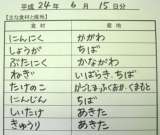 平成 24年 6月 15日分
【主な食材と産地】
食材 産地
にんにく かがわ
しょうが ちば
ぶたにく かながわ
ねぎ いばらき、ちば
たけのこ
にんじん ちば
しいたけ あきた
きゅうり あきた